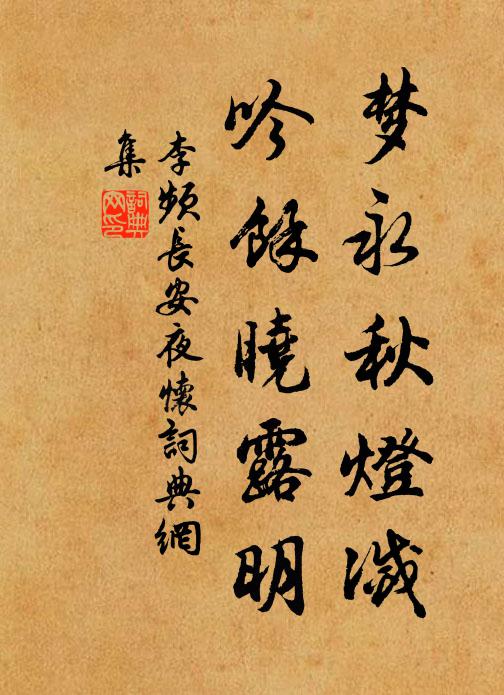 梦永秋燈滅
吟餘曉露明
李頻長安夜懷詞典網
集
詞典
网印